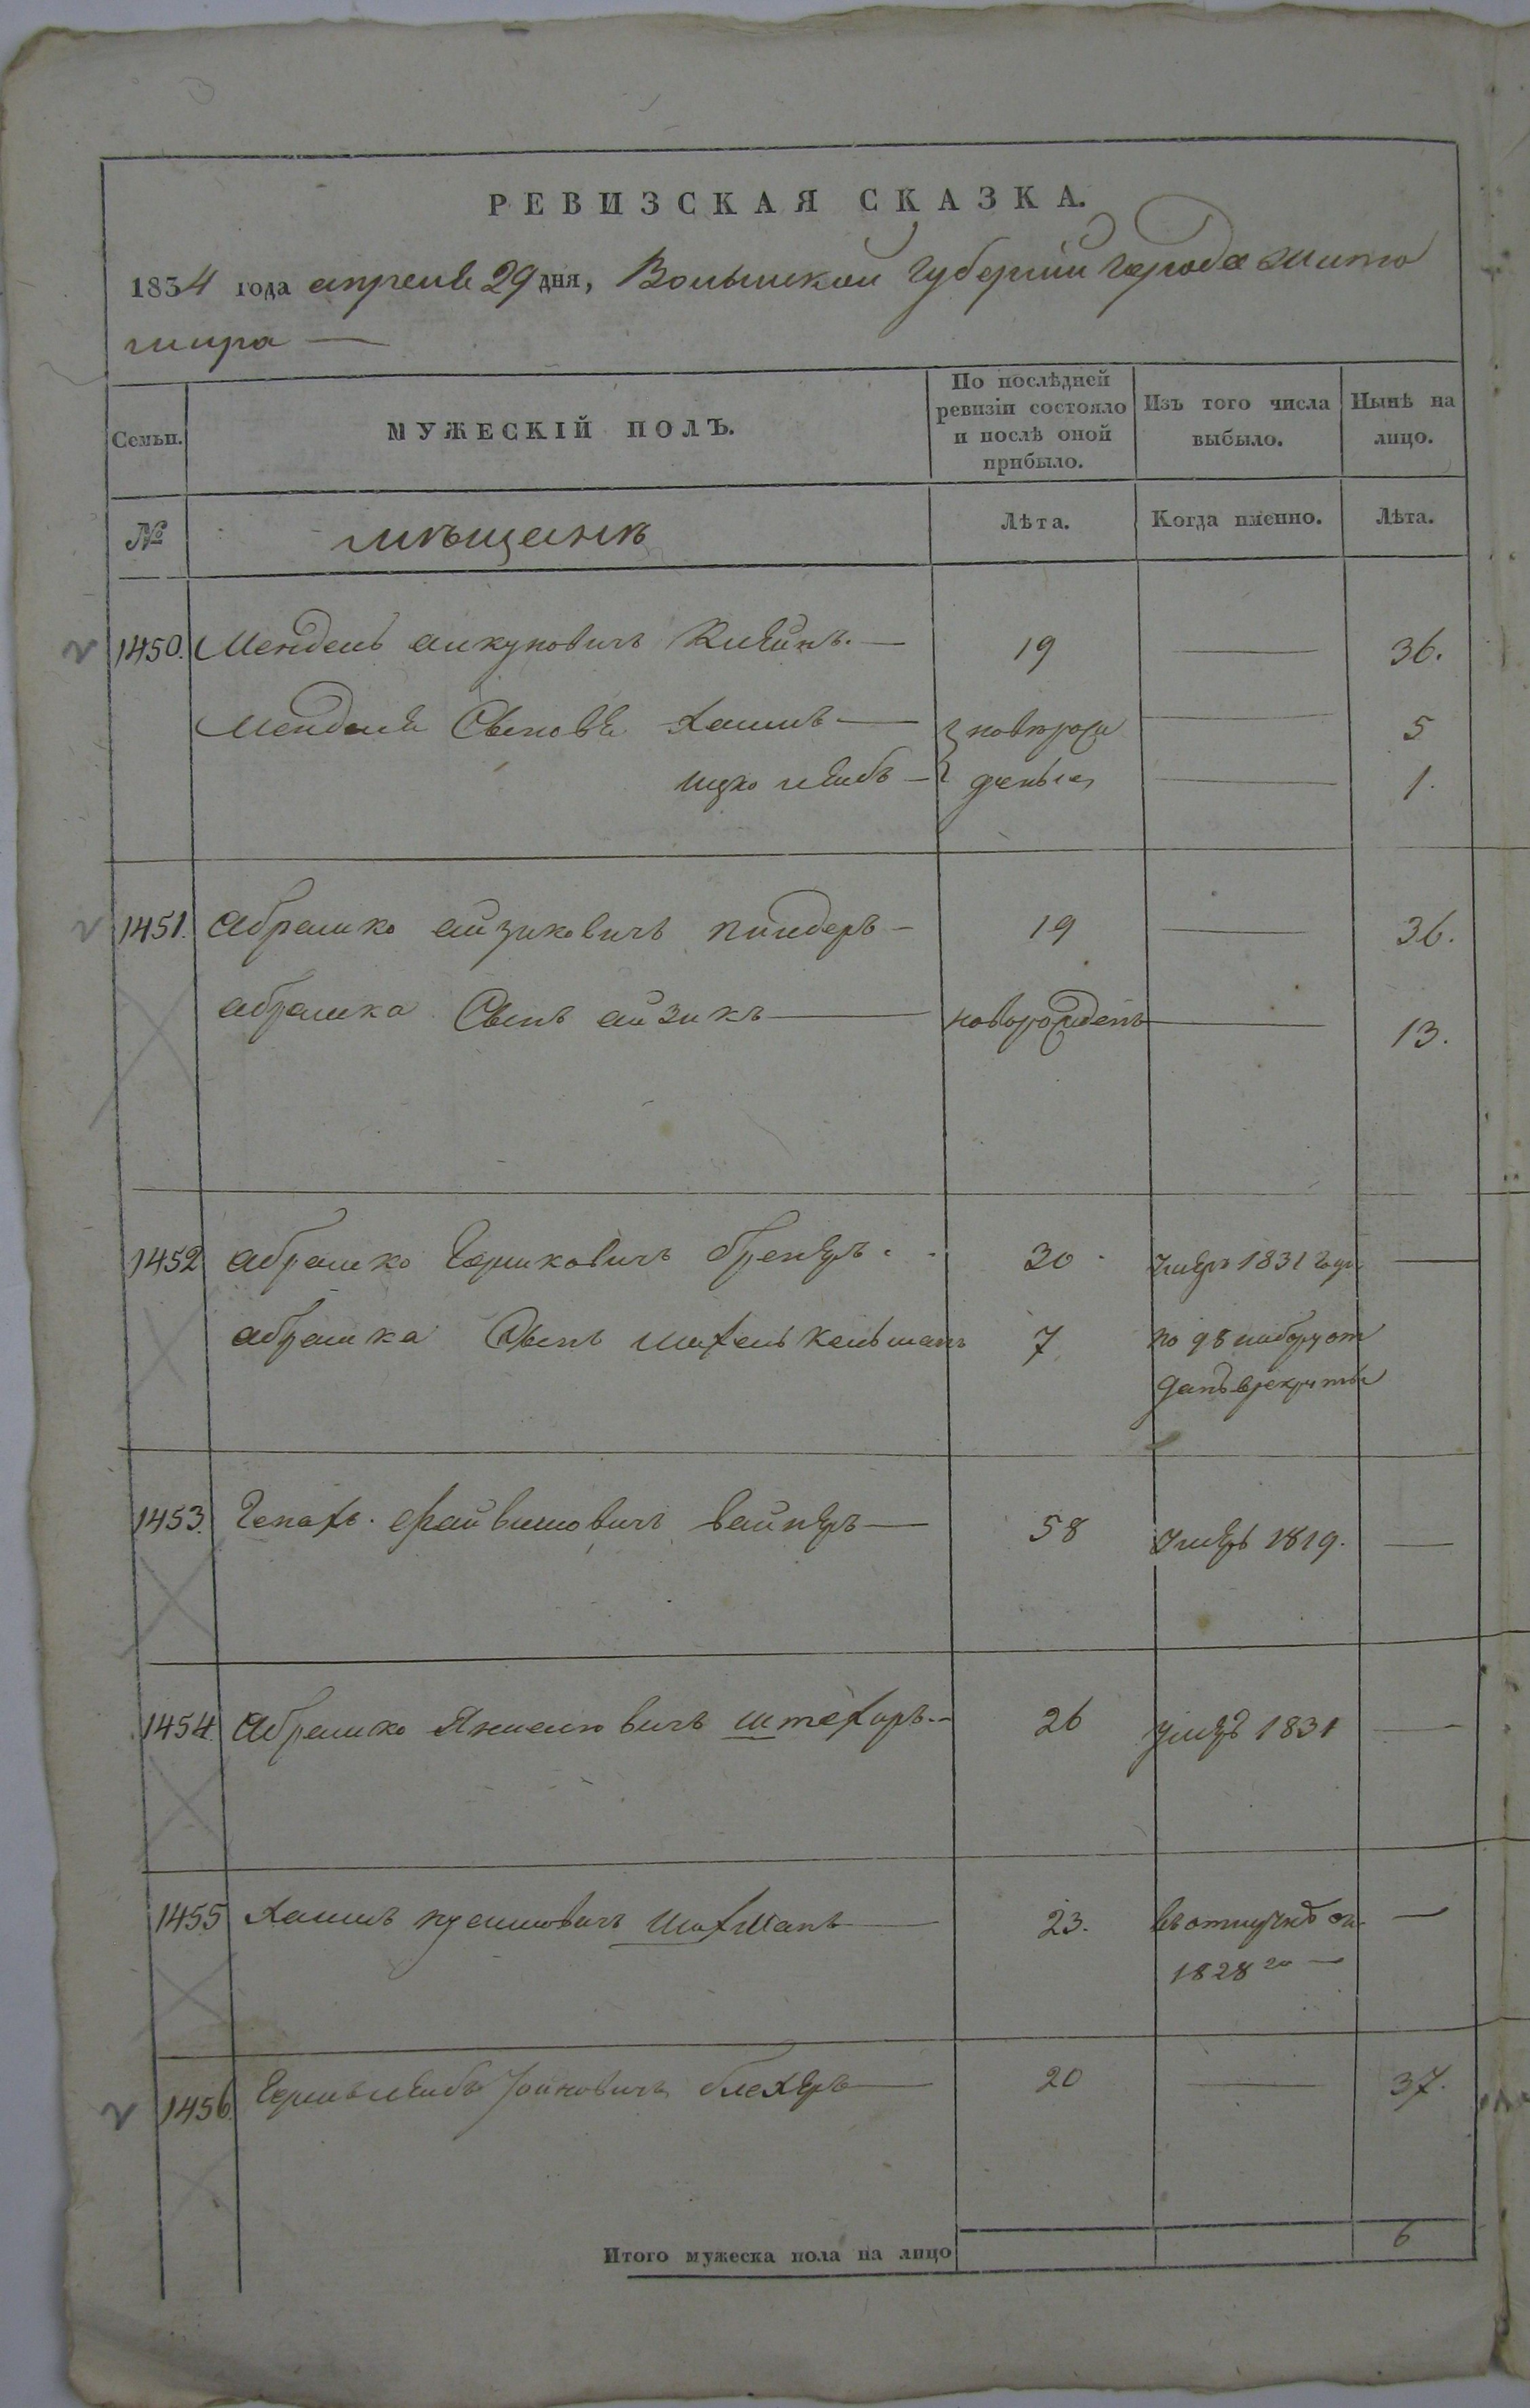 РЕВИЗСКАЯ СКАЗКА.
1834 года апреля 29 дня, Волынской губернии города Жито
мира —
Семьи. МУЖЕСКІЙ ПОЛЪ. По послѣдней ревизіи состояло и послѣ оной прибыло. Изъ того числа выбыло. Нынѣ на лицо.
№ мѣщанѣ Лѣта. Когда именно. Лѣта.
1450. Мендель Клейнъ. — 19 — 36.
Менделя Сыновья Хаимъ — новорож — 5
Ицко лейбъ — деныя — 1.
1451. Абрашко айзиковичъ пиндеръ — 19 — 36.
абрашка Сынъ айзикъ — новорожденъ — 13.
1452 абрашко Гершковичъ бренеръ 30 умеръ 1831 года —
абрашка Сынъ 7 по 98 набору от
данъ в рекруты
1453. файвишовичъ вайнеръ — 58 умеръ 1819. —
1454. Абрашко штехоръ — 26 умеръ 1831 —
1455 Хаимъ шахманъ — 23. въ отлучкѣ —
1828 го —
1456. Гершълейбъ блехеръ — 20 — 37.
Итого мужеска пола на лицо 6